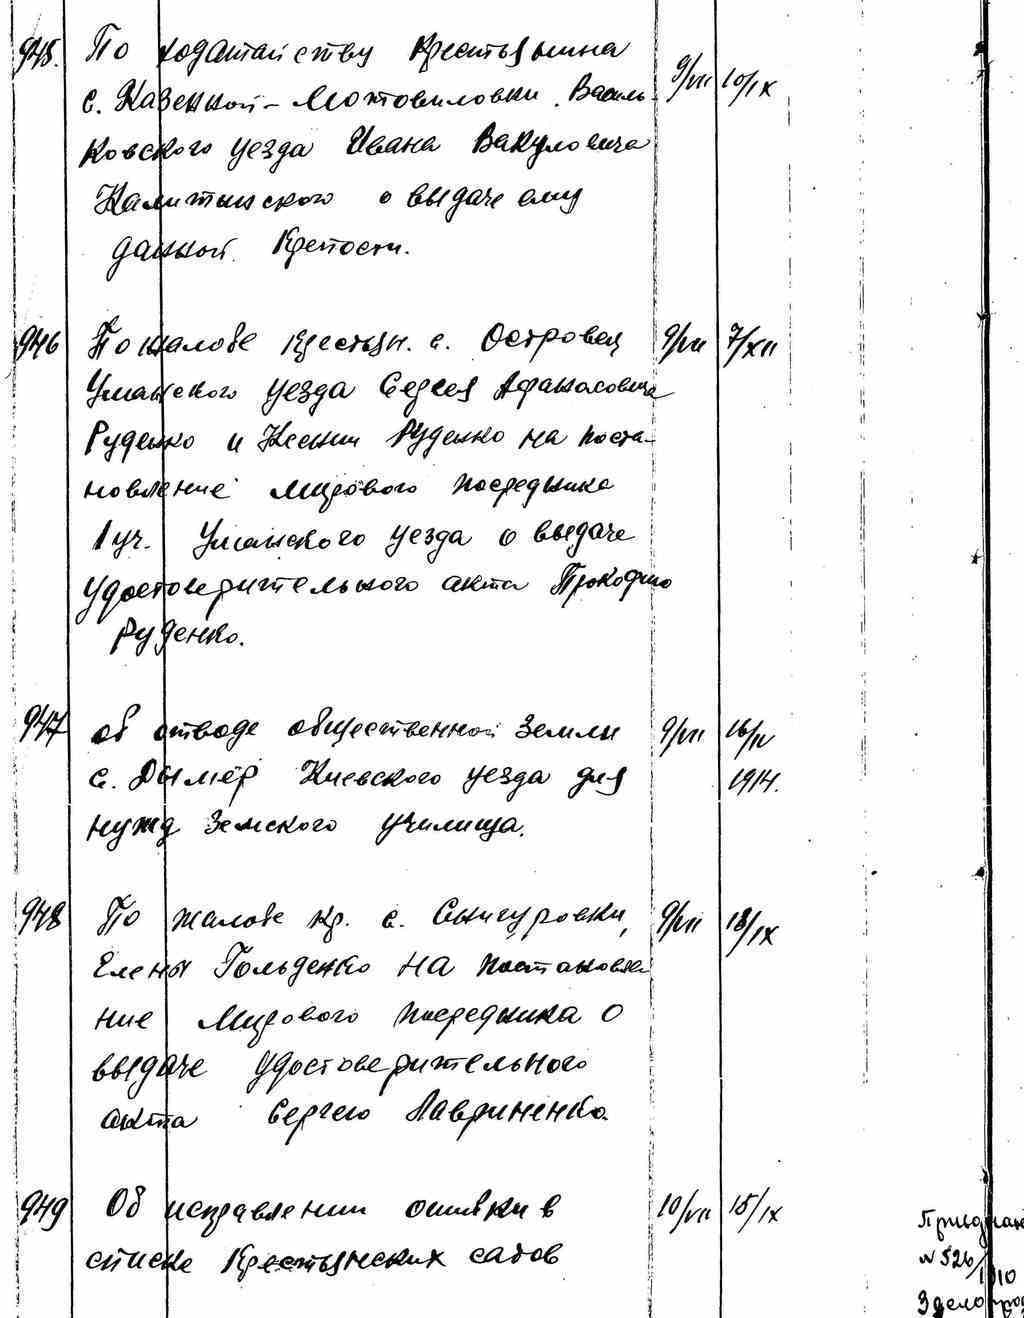 945. По ходатайству крестьянина 9/VII 10/IX
с. Казенной-Мотовиловки Василь-
ковского уезда Ивана Вакуловича
Калитынского о выдаче ему
данной крепости.
946 По жалобе крестьян. с. Островец 9/VII 7/XII
Уманского уезда Сергея Афанасовича
Руденко и Ксении Руденко на поста-
новление мирового посредника
1 уч. Уманского уезда о выдаче
удостоверительного акта Прокофию
Руденко.
947 об отводе общественной земли 9/VII 16/IV
с. Дымер Киевского уезда для 1914.
нужд земского училища.
948 По жалобе кр. с. Снигуровки, 9/VII 18/IX
Елены Гольденко на постановле
ние мирового посредника о
выдаче удостоверительного
акта Сергею Лавриненко.
949 Об исправлении ошибки в 10/VII 15/IX
списке крестьянских садов
№ 526/1910